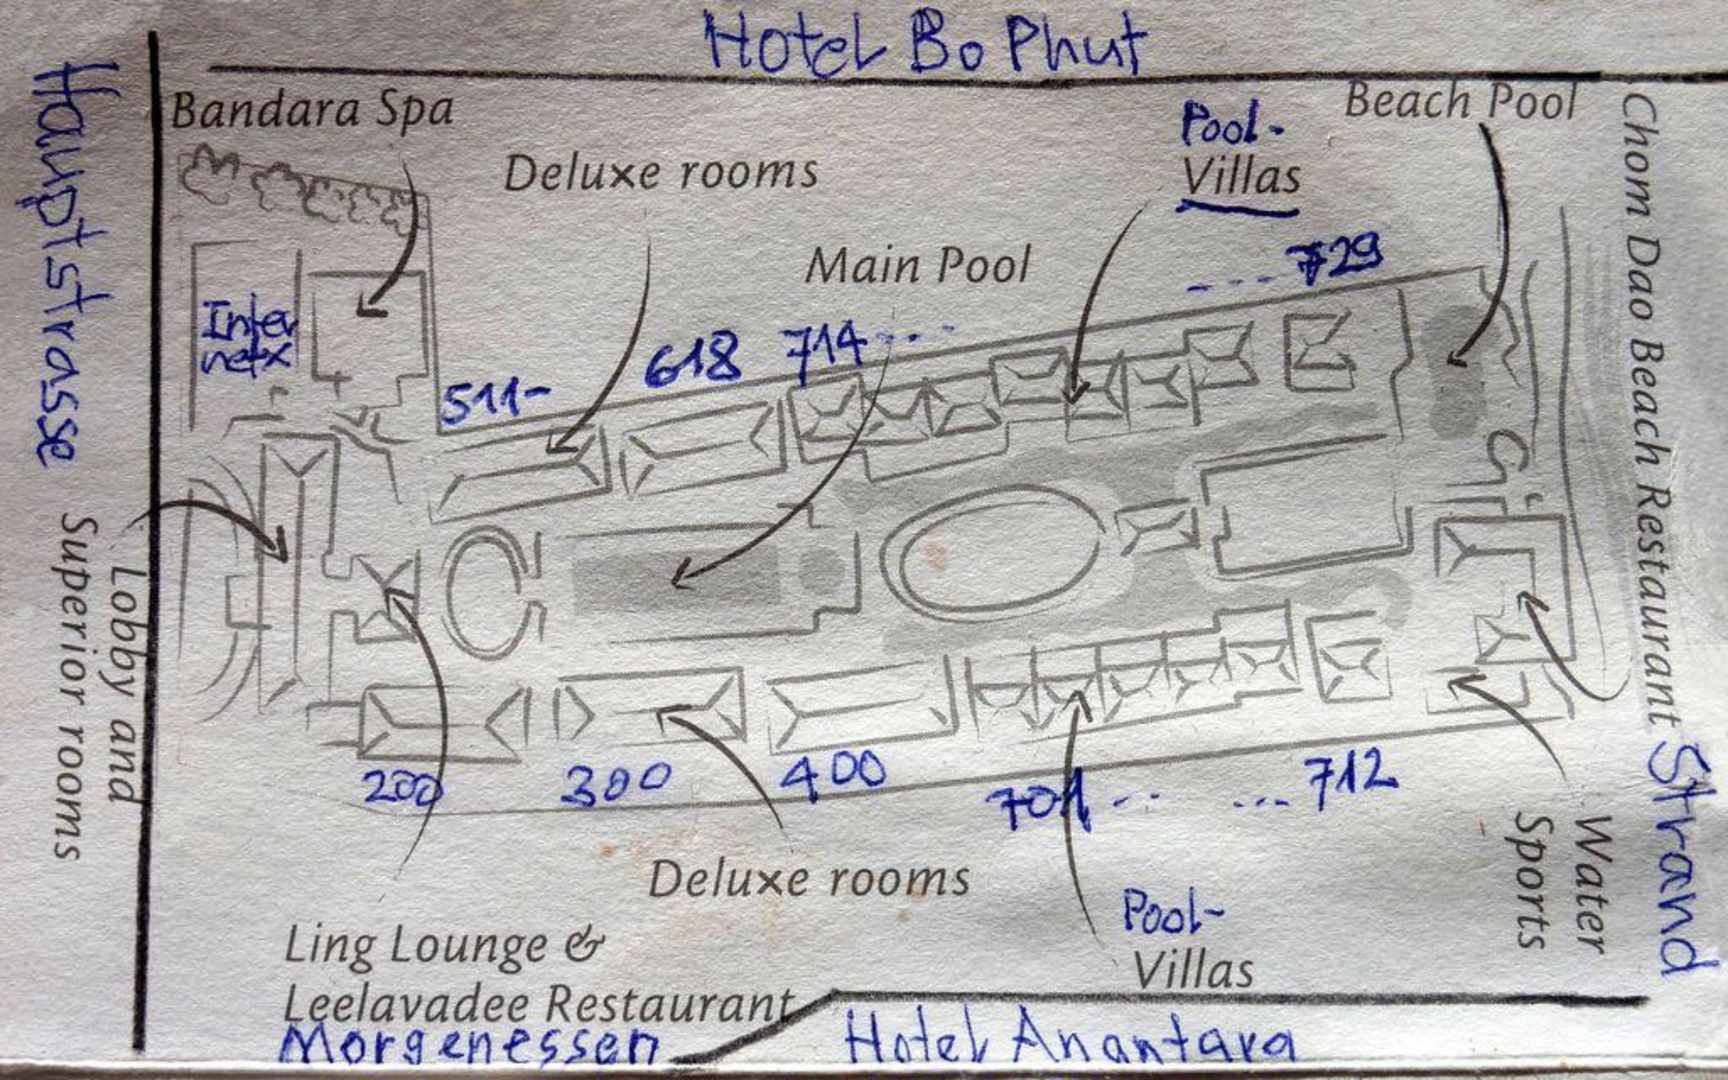 Hotel Bo Phut
Bandara Spa
Beach Pool
Pool-
Villas
Deluxe rooms
Main Pool
729
Hauptstrasse
Chom Dao Beach Restaurant
618
714
511-
Lobby and
Superior rooms
200
300
400
701
712
Deluxe rooms
Water
Sports
Strand
Pool-
Villas
Ling Lounge &
Leelavadee Restaurant
Morgenessen
Hotel Anantara